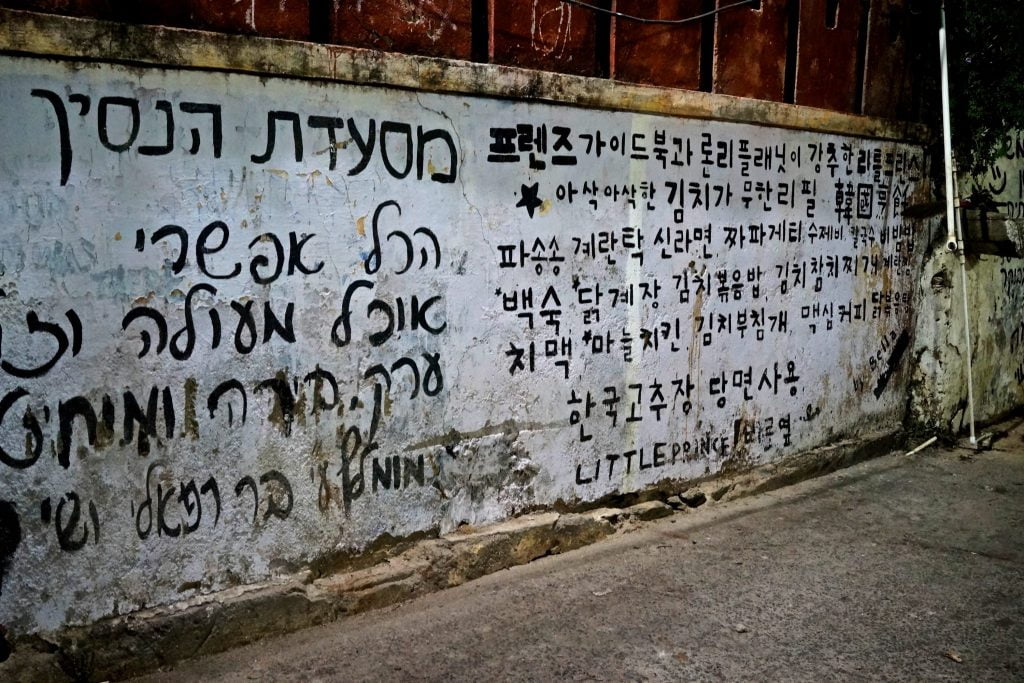 מסעדת הנסיך
הכל אפשרי
אוכל מעולה
ערק בירה
בר רפאלי
프렌즈 가이드북과 론리플래닛이 강추한 리틀프린스
★ 아삭아삭한 김치가 무한리필 韓國
파송송 계란탁 신라면, 짜파게티, 수제비, 칼국수, 비빔밥
*백숙 *닭계장 김치볶음밥, 김치참치찌개
치맥 *마늘치킨 김치부침개, 맥심커피 닭볶음탕
한국고추장 당면사용
LITTLE PRINCE 바로옆